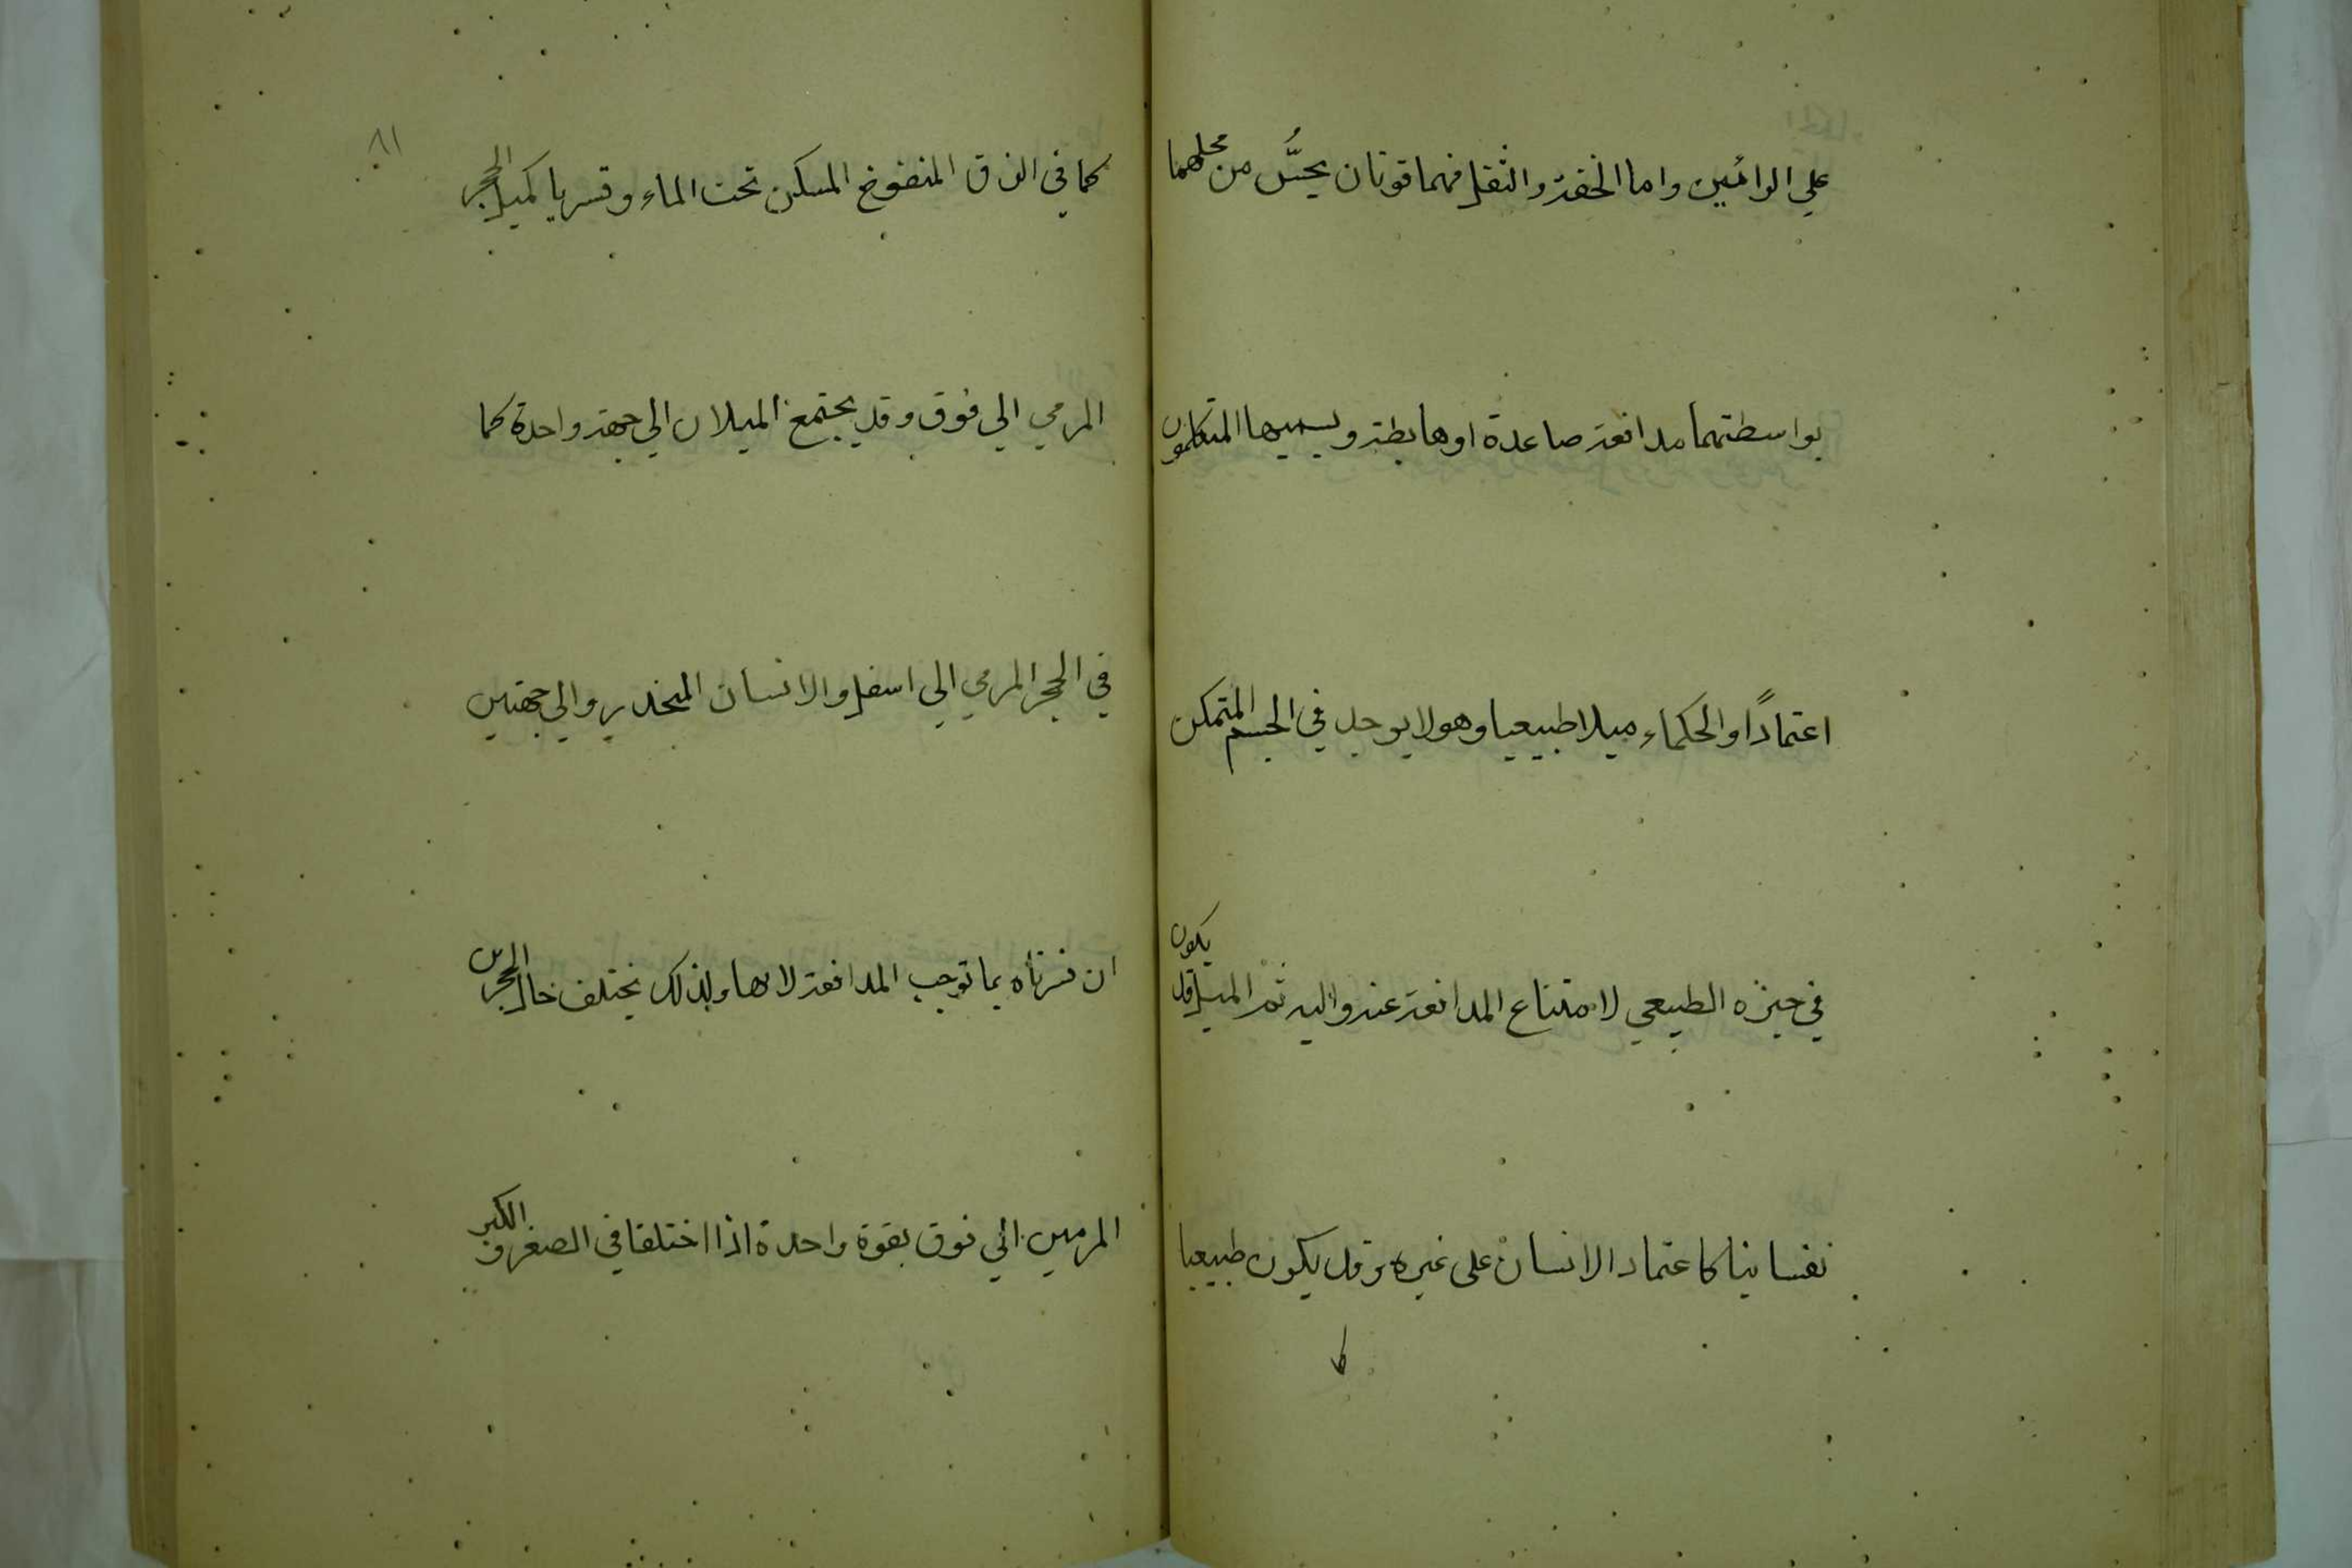 علي الرائين واما الخفة والثقل فهما قوتان يحسُّ من محلهما
بواسطتهما مدافعة صاعدة او هابطة ويسميها المتكلمون
اعتمادًا والحكماء ميلا طبيعيا وهو لا يوجد في الجسم المتمكن
في حيزه الطبيعي لامتناع المدافعة عنه واليه ثم الميل قد يكون
نفسانيا كاعتماد الانسان على غيره وقد يكون طبيعيا
كما في الزق المنفوخ المسكن تحت الماء وقسريا كميل الحجر
المرمي الي فوق وقد يجتمع الميلان الي جهة واحدة كما
في الحجر المرمي الي اسفل والانسان المنحدر والي جهتين
ان فسرناه بما توجب المدافعة لا بها ولذلك يختلف حال الحجرين
المرميين الي فوق بقوة واحدة اذا اختلفا في الصغر والكبر